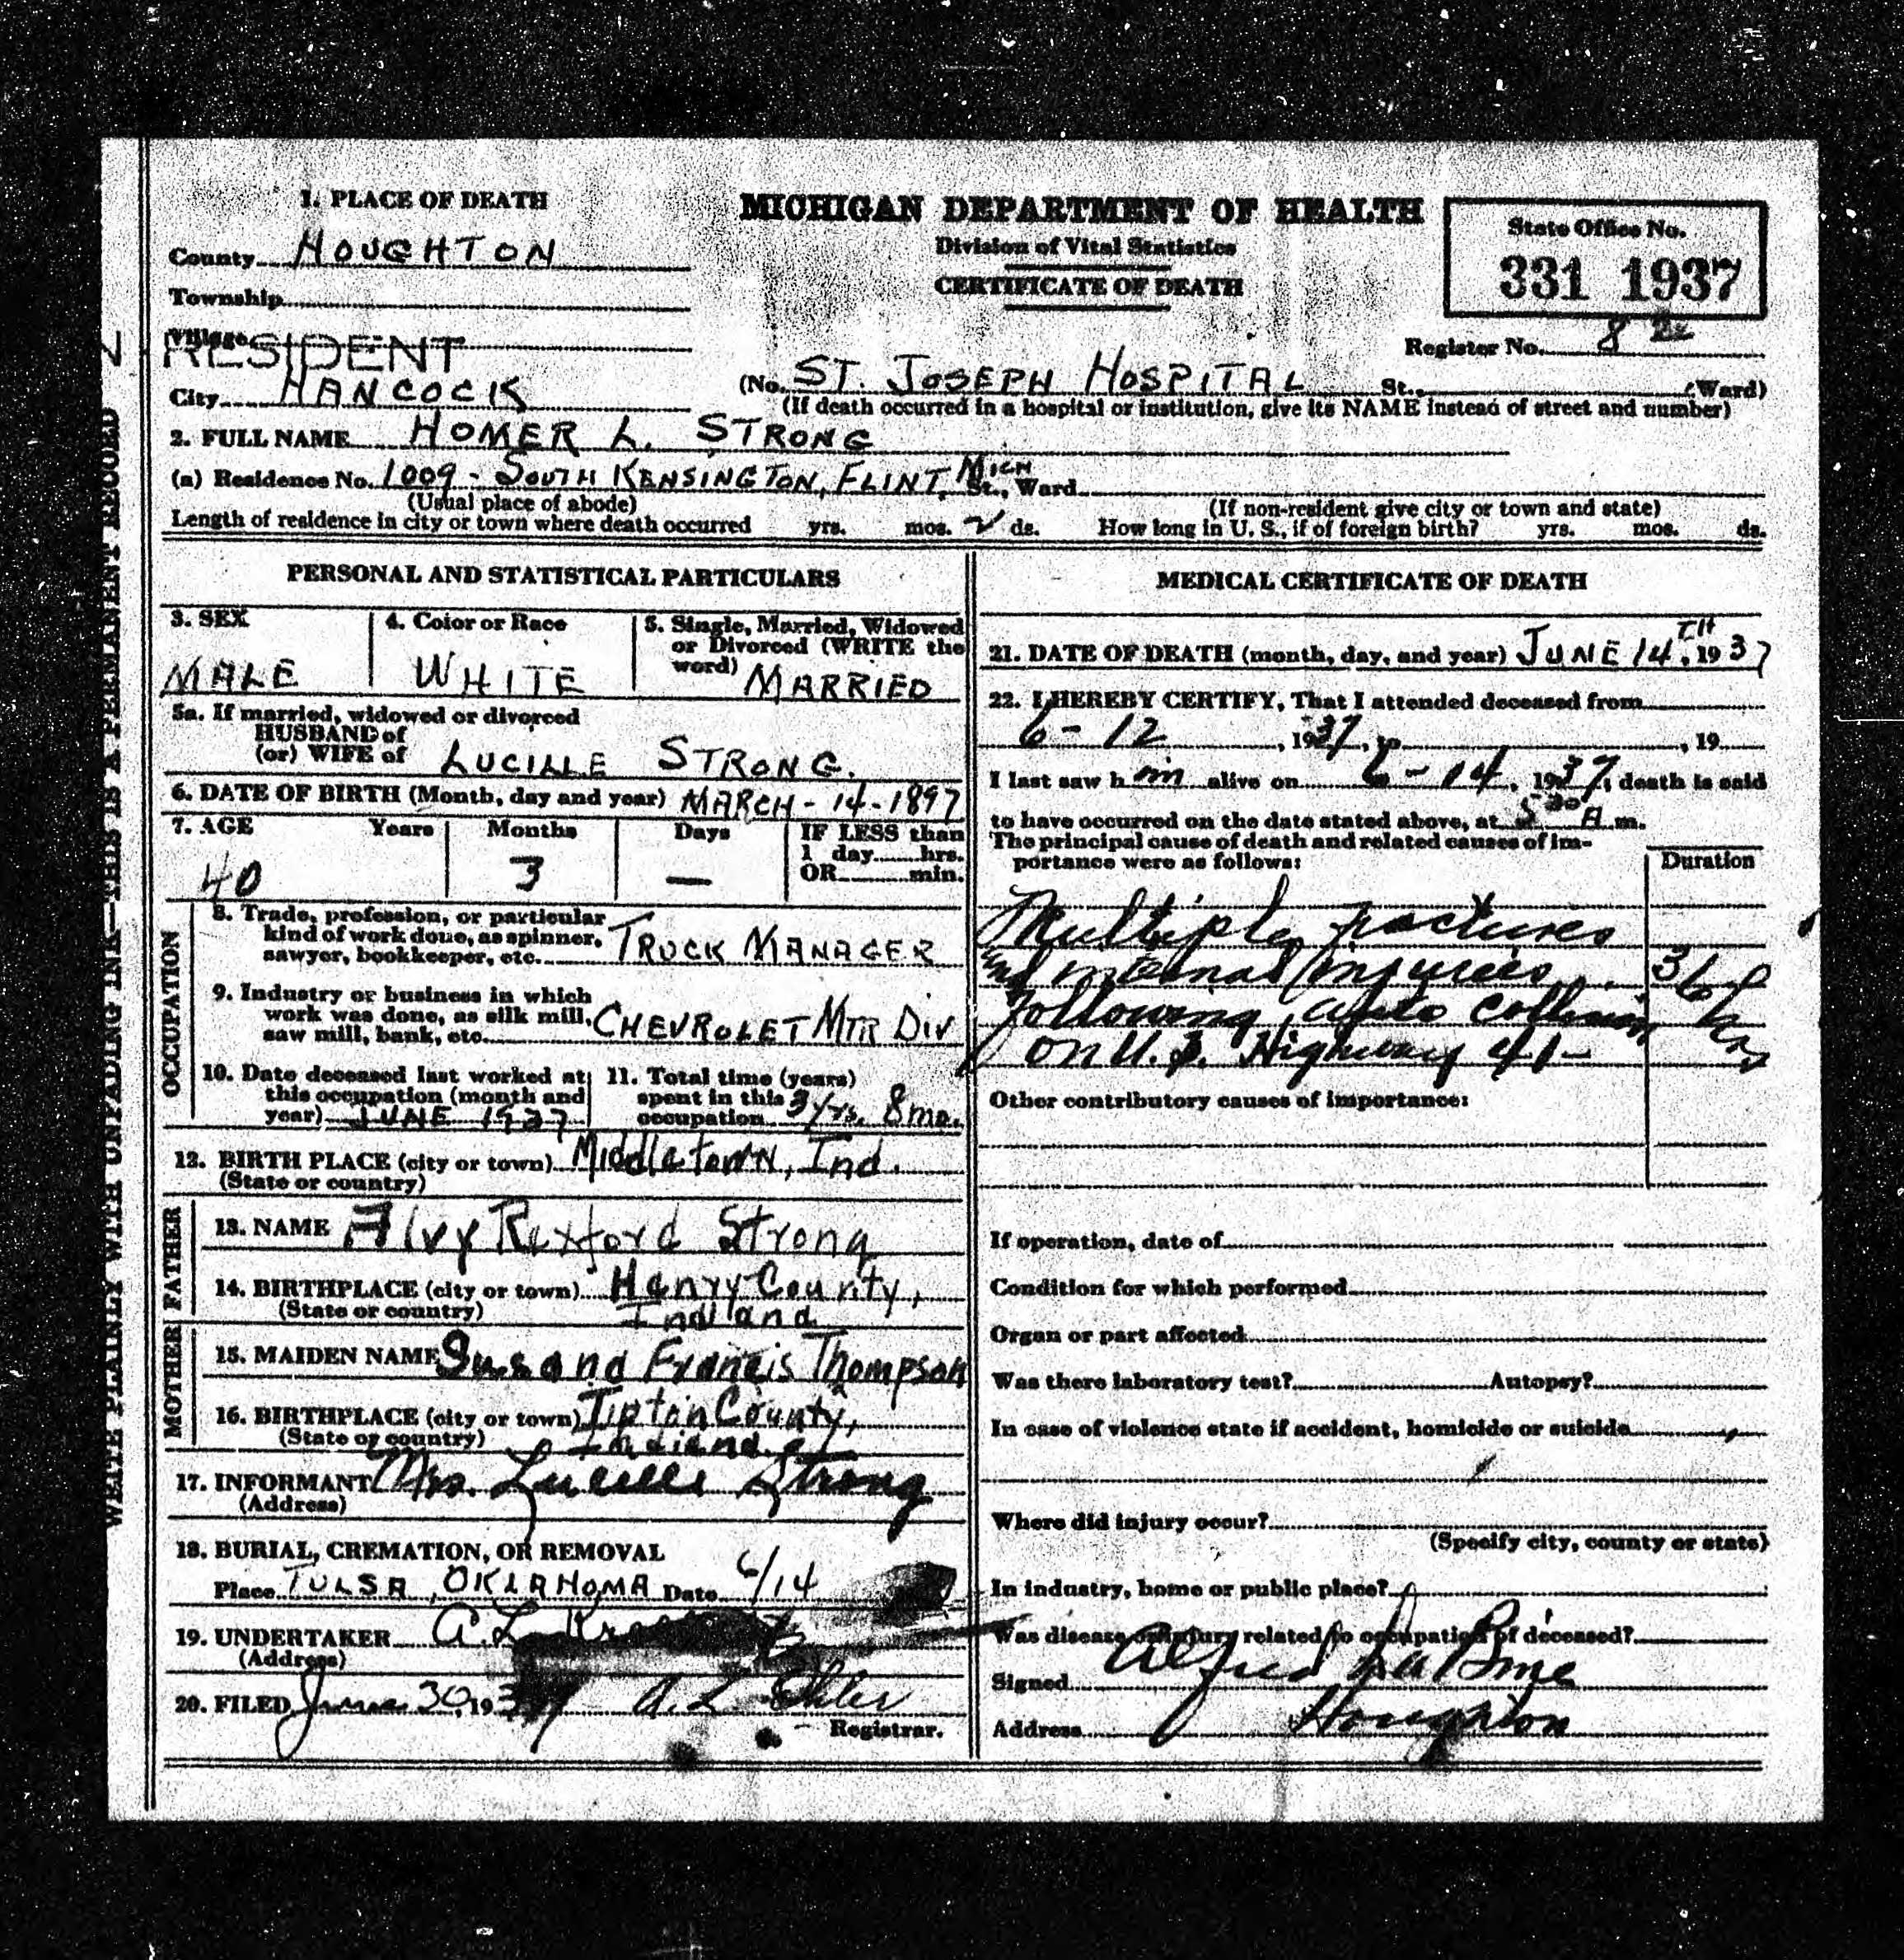 1. PLACE OF DEATH
MICHIGAN DEPARTMENT OF HEALTH
Division of Vital Statistics
CERTIFICATE OF DEATH
State Office No.
331 1937
County HOUGHTON
Township
Village
RESIDENT
Register No. 8
City HANCOCK
(No. ST. JOSEPH HOSPITAL St., (Ward)
(If death occurred in a hospital or institution, give its NAME instead of street and number)
2. FULL NAME HOMER L. STRONG
(a) Residence No. 1009 - SOUTH KENSINGTON, FLINT, MICH St., Ward
(Usual place of abode) (If non-resident give city or town and state)
Length of residence in city or town where death occurred yrs. mos. 2 ds. How long in U. S., if of foreign birth? yrs. mos. ds.
WRITE PLAINLY WITH UNFADING INK—THIS IS A PERMANENT RECORD
PERSONAL AND STATISTICAL PARTICULARS
3. SEX
MALE
4. Color or Race
WHITE
5. Single, Married, Widowed
or Divorced (WRITE the
word) MARRIED
5a. If married, widowed or divorced
HUSBAND of
(or) WIFE of LUCILLE STRONG.
6. DATE OF BIRTH (Month, day and year) MARCH - 14 - 1897
7. AGE Years Months Days IF LESS than
1 day hrs.
OR min.
40 3 —
OCCUPATION
8. Trade, profession, or particular
kind of work done, as spinner,
sawyer, bookkeeper, etc. TRUCK MANAGER
9. Industry or business in which
work was done, as silk mill,
saw mill, bank, etc. CHEVROLET MTR DIV
10. Date deceased last worked at
this occupation (month and
year) JUNE 1937
11. Total time (years)
spent in this
occupation 3 yrs. 8 mo.
12. BIRTH PLACE (city or town) Middletown, Ind.
(State or country)
FATHER
13. NAME Alvy Rexford Strong
14. BIRTHPLACE (city or town) Henry County,
(State or country) Indiana
MOTHER
15. MAIDEN NAME Susana Francis Thompson
16. BIRTHPLACE (city or town) Tipton County,
(State or country) Indiana
17. INFORMANT Mrs. Lucille Strong
(Address)
18. BURIAL, CREMATION, OR REMOVAL
Place TULSA, OKLAHOMA Date 6/14
19. UNDERTAKER A. L.
(Address)
20. FILED June 30, 1937 A. L.
Registrar.
MEDICAL CERTIFICATE OF DEATH
21. DATE OF DEATH (month, day, and year) JUNE 14TH, 1937
22. I HEREBY CERTIFY, That I attended deceased from
6 - 12, 1937, to , 19
I last saw him alive on 6 - 14, 1937, death is said
to have occurred on the date stated above, at 5 30 A. m.
The principal cause of death and related causes of im-
portance were as follows:
Duration
Multiple fractures
and internal injuries
following auto collision
on U.S. Highway 41 -
36 hrs
Other contributory causes of importance:
If operation, date of
Condition for which performed
Organ or part affected
Was there laboratory test? Autopsy?
In case of violence state if accident, homicide or suicide
Where did injury occur?
(Specify city, county or state)
In industry, home or public place?
Was disease or injury related to occupation of deceased?
Signed Alfred LaBine
Address Houghton